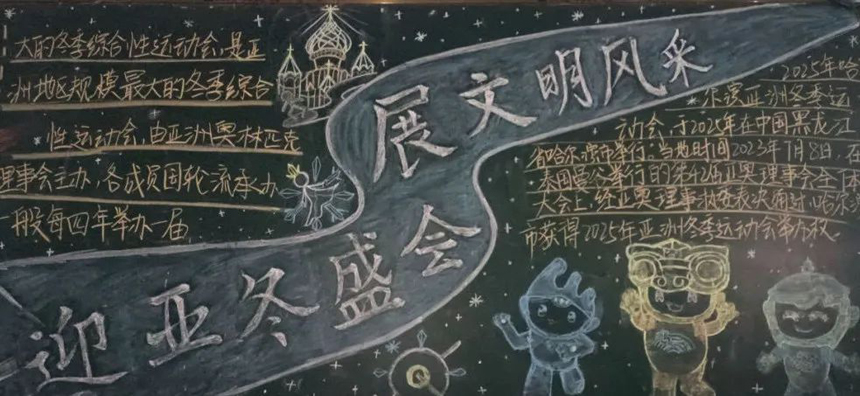 大的冬季综合性运动会,是亚
洲地区规模最大的冬季综合
性运动会,由亚洲奥林匹克
理事会主办,各成员国轮流承办,
一般每四年举办一届
展文明风采
迎亚冬盛会
2025年哈
尔滨亚洲冬季运
动会,于2025年在中国黑龙江
省哈尔滨市举行。当地时间2023年7月8日,在
泰国曼谷举行的第42届亚奥理事会全体
大会上,经亚奥理事会投票表决
市获得2025年亚洲冬季运动会举办权。